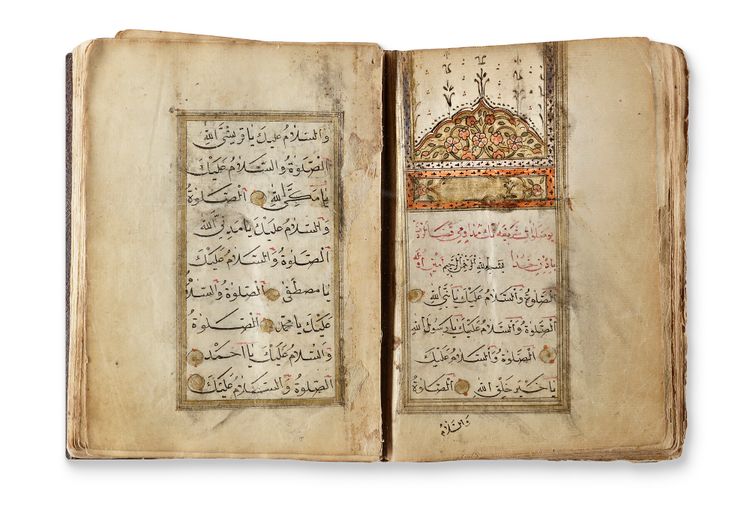 بسم الله الرحمن الرحيم
الصلوة والسلام عليك يا نبي الله
الصلوة والسلام عليك يا رسول الله
الصلوة والسلام عليك
يا خير خلق الله الصلوة
والسلام
والسلام عليك يا قريشي الله
الصلوة والسلام عليك
يا مكي الله الصلوة
والسلام عليك يا مدني الله
الصلوة والسلام عليك
يا مصطفى الصلوة والسلام
عليك يا محمد الصلوة
والسلام عليك يا احمد
الصلوة والسلام عليك